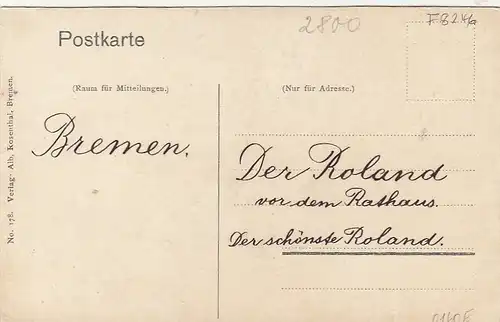 2800
F824/a
Postkarte
(Raum für Mitteilungen.)
(Nur für Adresse.)
Bremen.
Der Roland
vor dem Rathaus.
Der schönste Roland.
No. 178. Verlag- Alb. Rosenthal, Bremen.